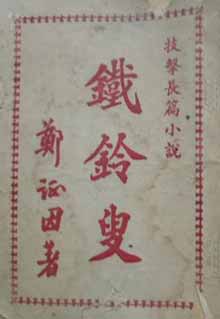 技擊長篇小說
鐵鈴叟
鄭証因著